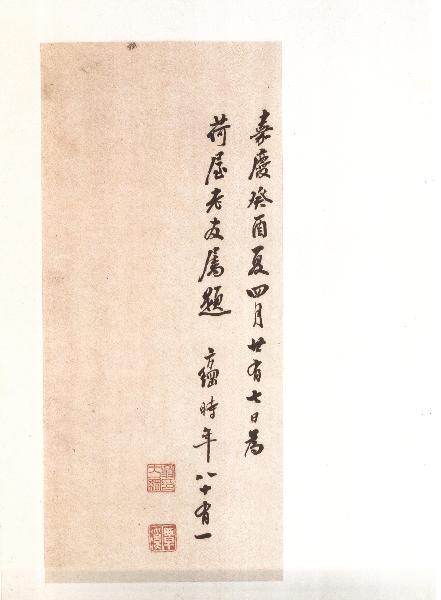 嘉慶癸酉夏四月廿有七日為
荷屋老友屬題 方綱時年八十有一